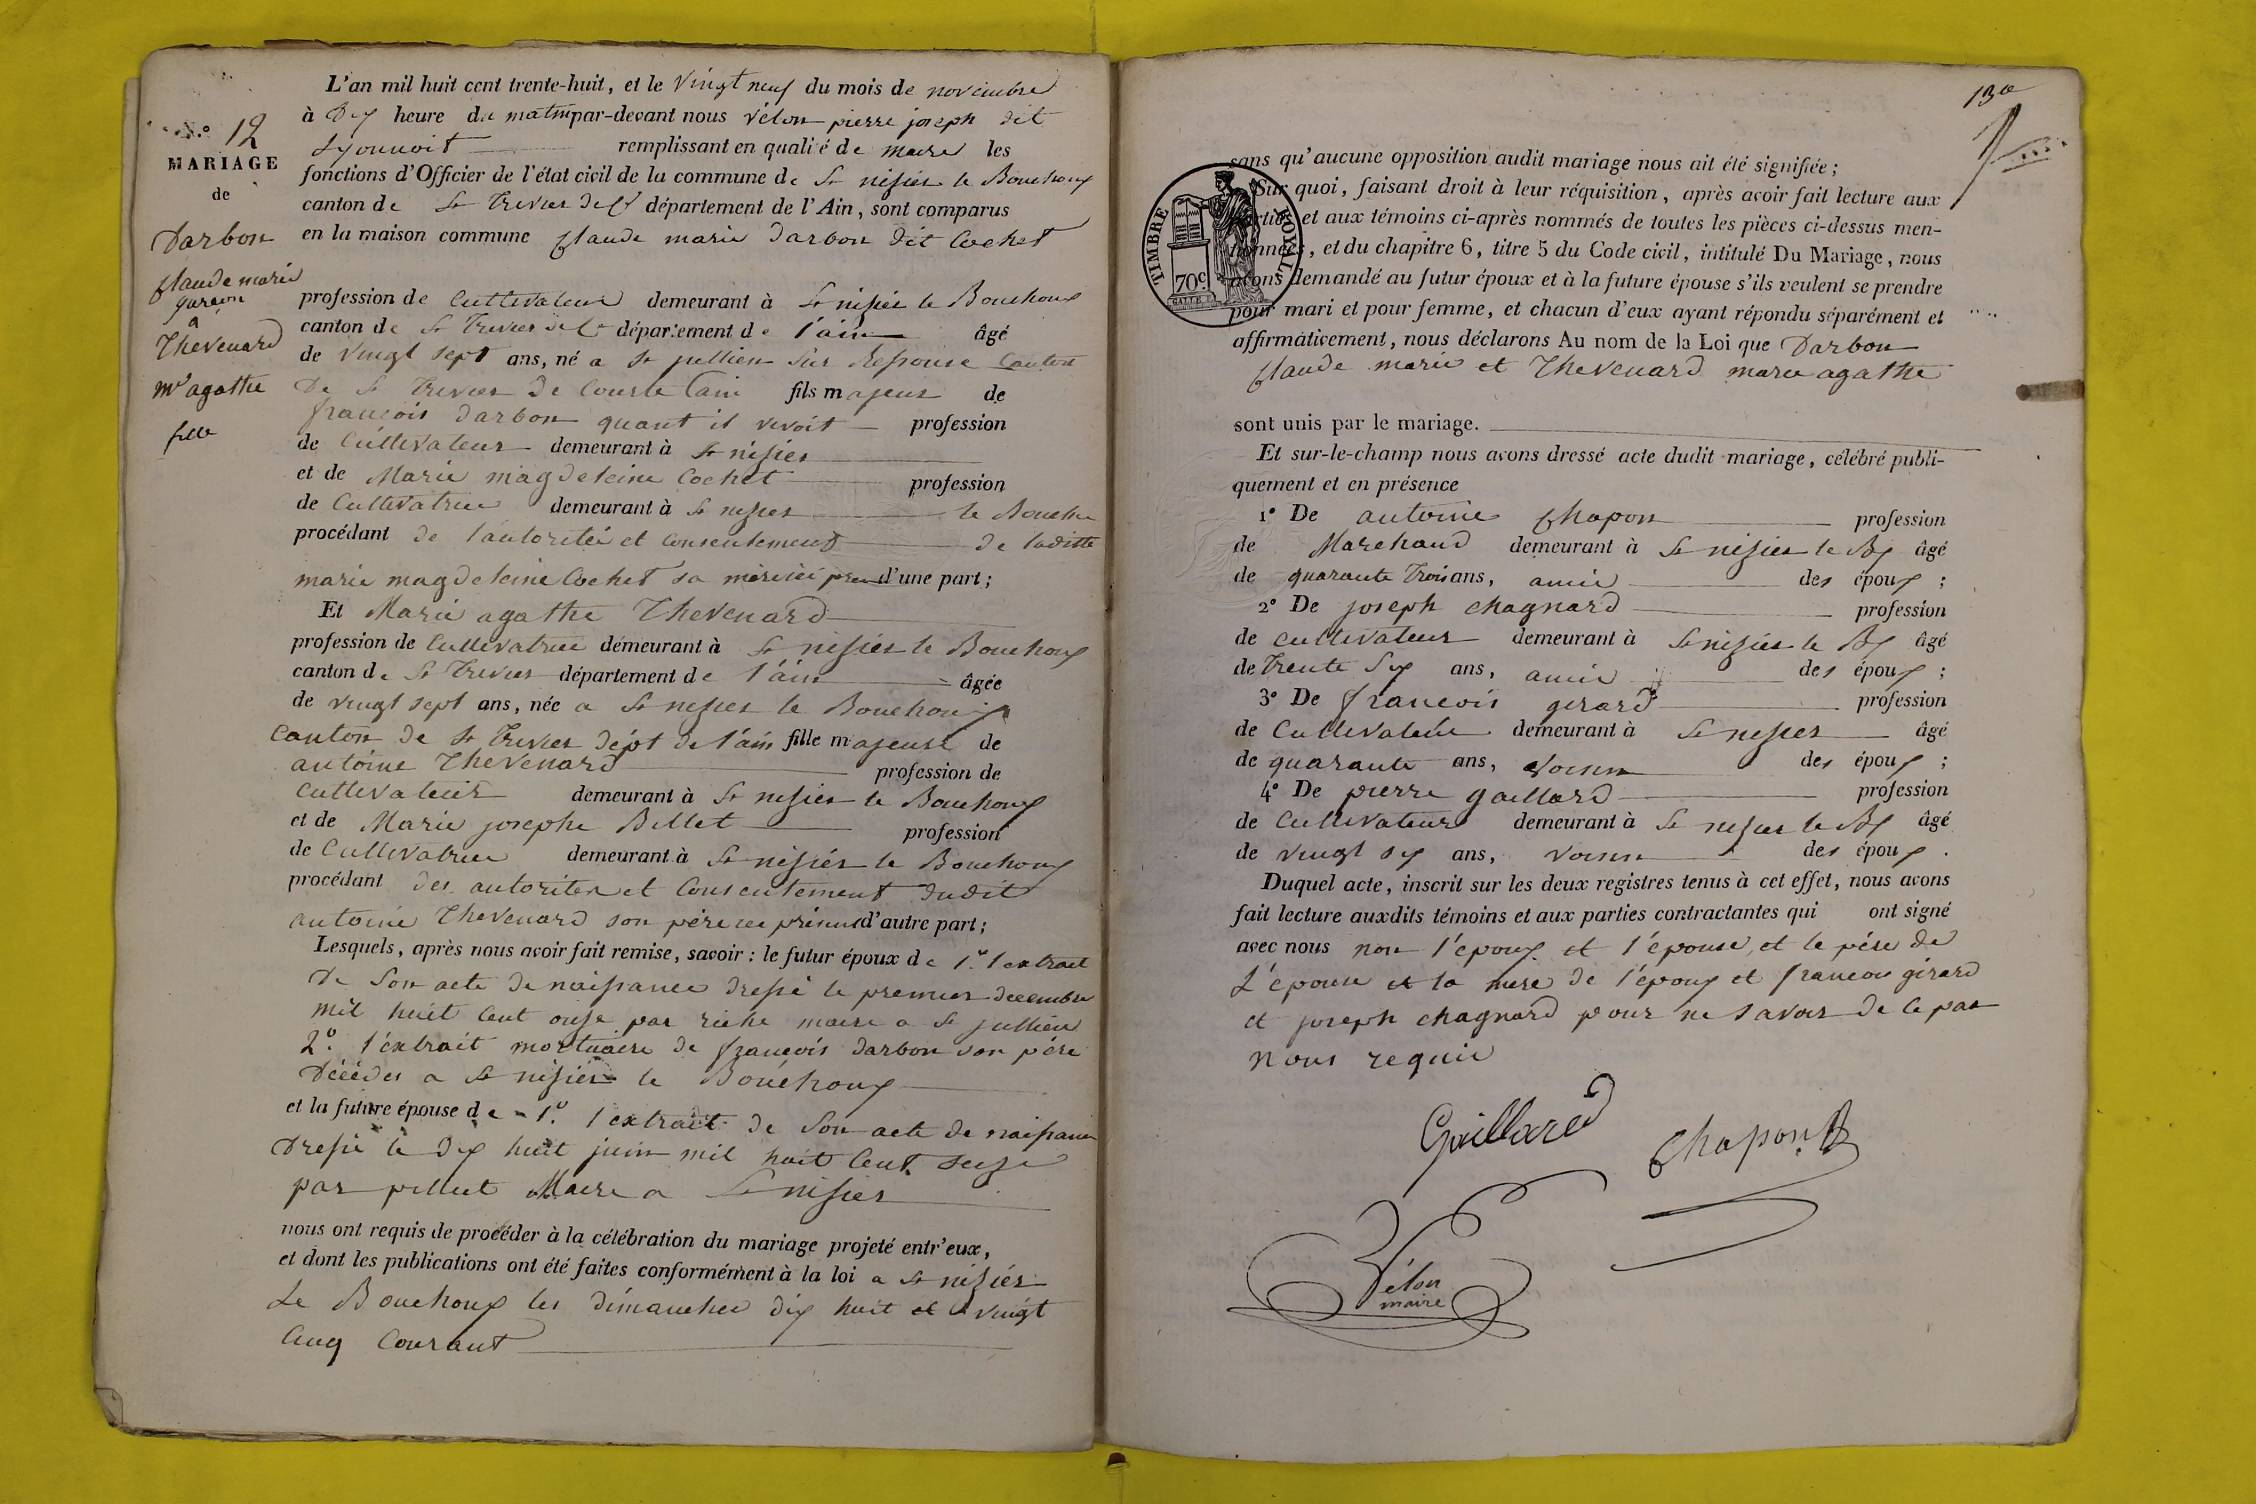 N.° 12
MARIAGE
de
Darbon
Claude marie
garçon
à
Thevenard
mie agathe
fille
L'an mil huit cent trente-huit, et le vingt neuf du mois de novembre
à Dix heure du matin par-devant nous vélon pierre joseph dit
Lyonnoit remplissant en qualité de maire les
fonctions d'Officier de l'état civil de la commune de St nisier le Bouchoux
canton de St Trivier de Cs département de l'Ain, sont comparus
en la maison commune Claude marie Darbon dit Cochet
profession de Cultivateur demeurant à St nisier le Bouchoux
canton de St Trivier de Cs département de l'ain âgé
de vingt sept ans, né a st jullien sur Resouse Canton
De St Trivier de Courte l'ain fils majeur de
françois darbon quant il vivoit profession
de Cultivateur demeurant à St nisier
et de Marie magdeleine Cochet profession
de Cultivatrice demeurant à St nisier le Bouchx
procédant de l'autoritée et Consentement de laditte
marie magdeleine Cochet sa mère ici pres d'une part;
Et Marie agathe Thevenard
profession de Cultivatrice demeurant à St nisier le Bouchoux
canton de St Trivier département de l'ain âgée
de vingt sept ans, née a St nisier le Bouchoux
Canton de St Trivier dépt de l'ain fille majeure de
antoine Thevenard profession de
Cultivateur demeurant à St nisier le Bouchoux
et de Marie josephe Billet profession
de Cultivatrice demeurant à St nisier le Bouchoux
procédant des autorités et Consentement dudit
antoine Thevenard son père ici présent d'autre part;
Lesquels, après nous avoir fait remise, savoir: le futur époux de 1.° l'extrait
de Son acte de naissance dressé le premier decembre
mil huit Cent onze par riche maire a St jullien
2.° l'extrait mortuaire de françois darbon son père
Décédé a St nisier le Bouchoux
et la future épouse de 1.° l'extrait de Son acte de naissance
Dressé le dix huit juin mil huit Cent seize
par pillut Maire a St nisier
nous ont requis de procéder à la célébration du mariage projeté entr'eux,
et dont les publications ont été faites conformément à la loi a St nisier
Le Bouchoux les dimanches dix huit et vingt
Cinq Courant
13e
TIMBRE ROYAL
70c
sans qu'aucune opposition audit mariage nous ait été signifiée;
Sur quoi, faisant droit à leur réquisition, après avoir fait lecture aux
parties et aux témoins ci-après nommés de toutes les pièces ci-dessus men-
tionnées, et du chapitre 6, titre 5 du Code civil, intitulé Du Mariage, nous
avons demandé au futur époux et à la future épouse s'ils veulent se prendre
pour mari et pour femme, et chacun d'eux ayant répondu séparément et
affirmativement, nous déclarons Au nom de la Loi que Darbon
Claude marie et Thevenard marie agathe
sont unis par le mariage.
Et sur-le-champ nous avons dressé acte dudit mariage, célébré publi-
quement et en présence
1° De antoine Chapon profession
de Marchand demeurant à St nisier le Bx âgé
de quarante trois ans, amie des époux;
2° De joseph chagnard profession
de cultivateur demeurant à St nisier le Bx âgé
de Trente Six ans, amie des époux;
3° De françois girard profession
de Cultivateur demeurant à St nisier âgé
de quarante ans, voisin des époux;
4° De pierre gaillard profession
de Cultivateur demeurant à St nisier le Bx âgé
de vingt six ans, voisin des époux.
Duquel acte, inscrit sur les deux registres tenus à cet effet, nous avons
fait lecture auxdits témoins et aux parties contractantes qui ont signé
avec nous non l'époux et l'épouse, et le père de
L'épouse et la mere de l'époux et francois girard
et joseph chagnard pour ne savoir de ce par
nous requis
Gaillard
Chapon
Vélon
maire